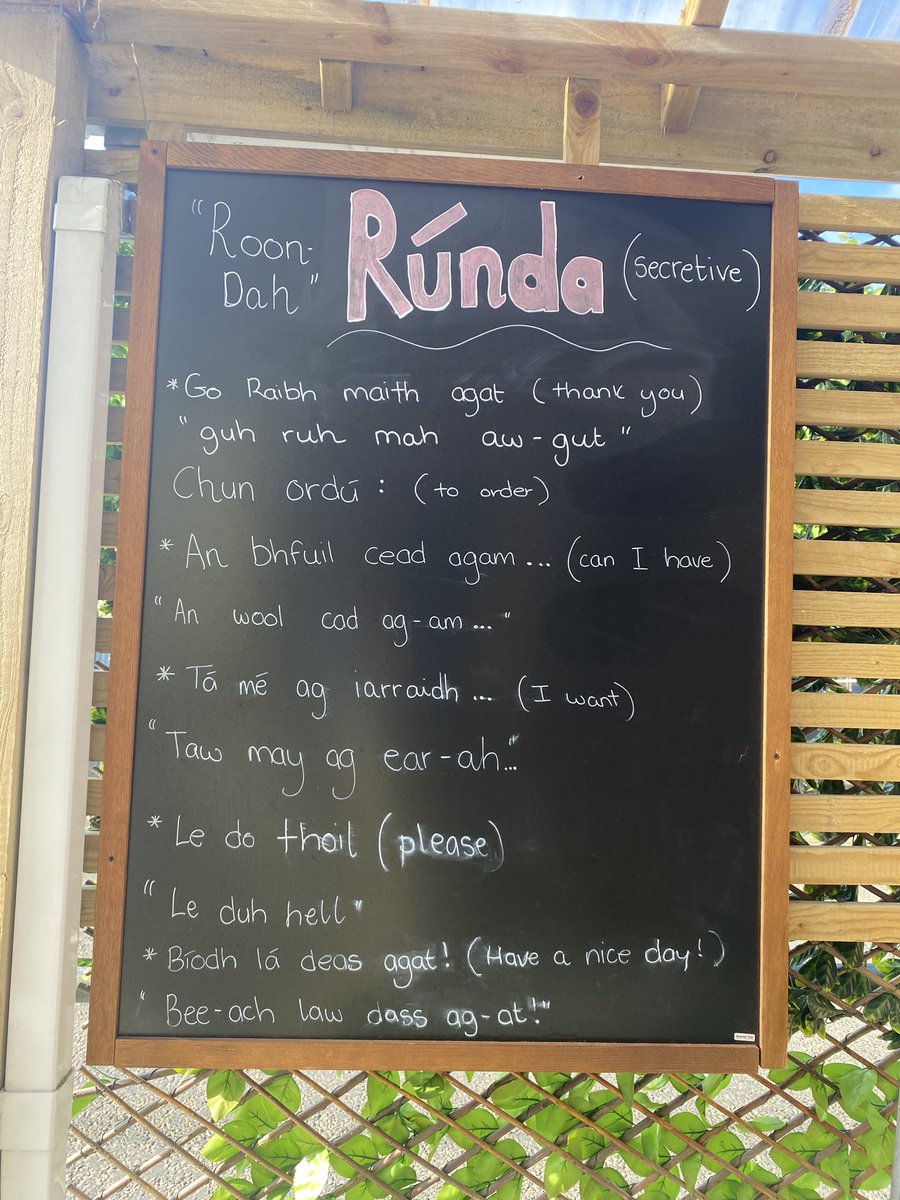 "Roon-
Dah"
Rúnda
(secretive)
*Go Raibh maith agat (thank you)
"guh ruh mah aw-gut"
Chun ordú: (to order)
*An bhfuil cead agam... (can I have)
"An wool cad ag-am..."
*Tá mé ag iarraidh... (I want)
"Taw may ag ear-ah..."
*Le do thoil (please)
"Le duh hell"
*Bíodh lá deas agat! (Have a nice day!)
"Bee-ach law dass ag-at!"